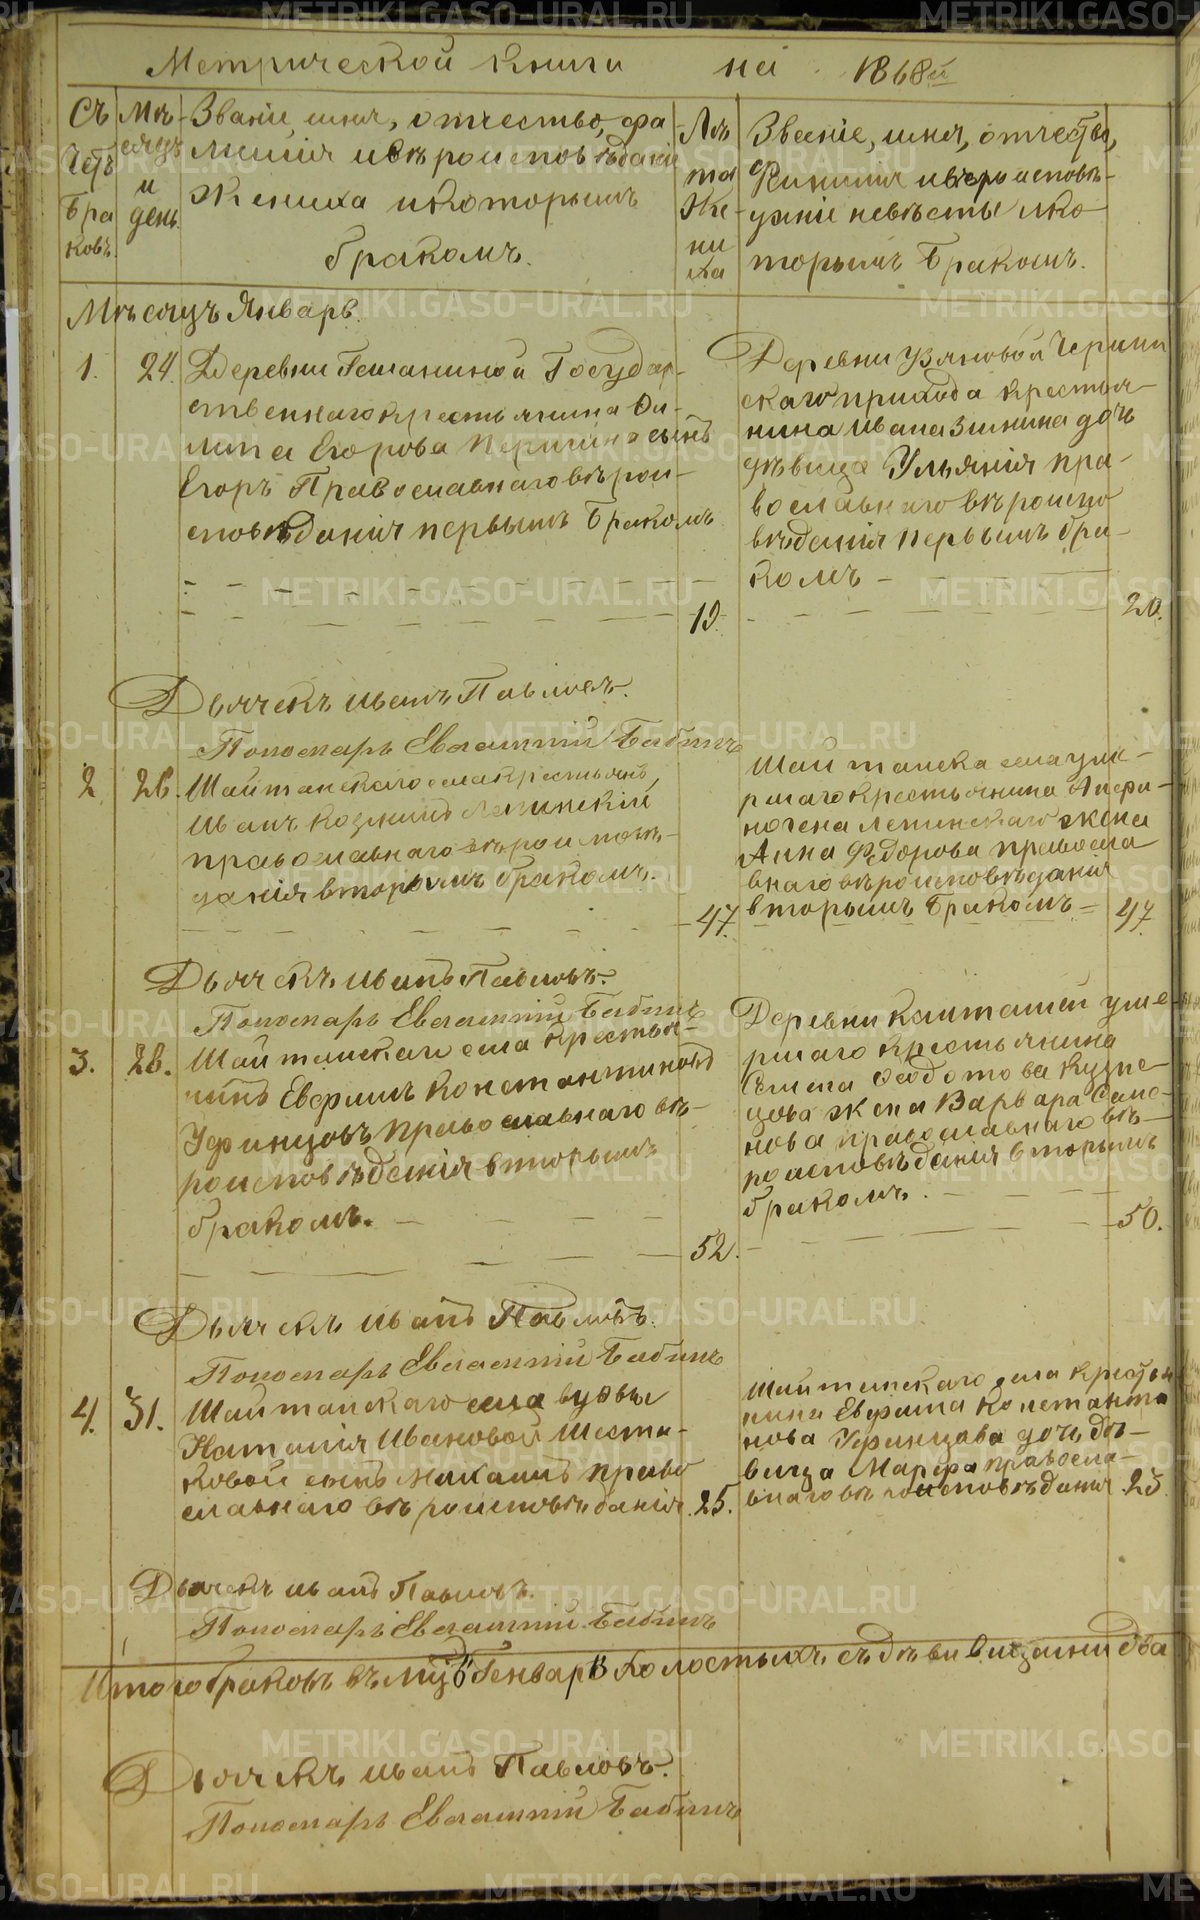 Метрической книги на 1868й
Счетъ браковъ
Мѣсяцъ и день
Званіе, имя, отчество, фа
милія и вѣроисповѣданіе
жениха и которымъ
бракомъ.
Лѣта жениха
Званіе, имя, отчество,
Фамилія и вѣроисповѣ-
даніе невѣсты и ко
торымъ бракомъ.
Мѣсяцъ Январь
1. 24.
Деревни Гешаниной Государ-
ственнаго крестьянина Фи-
липа Егорова сынъ
Егоръ Православнаго вѣрои-
сповѣданія первымъ бракомъ
19.
Деревни Узяновой
скаго прихода крестья-
нина Ивана Зинина дочь
дѣвица Ульянія пра-
вославнаго вѣроиспо
вѣданія первымъ бра-
комъ
20.
Дьячекъ Иванъ Павловъ.
Пономарь Евлампій Бабинъ
2 26.
Шайтанскаго села крестьянинъ,
Иванъ Козминъ Лепинскій
православнаго вѣроисповѣ-
данія вторымъ бракомъ.
47.
Шайтанска села уме-
ршаго крестьянина
Лепинскаго жена
Анна Федорова правосла
внаго вѣроисповѣданія
вторымъ бракомъ
47
Дьячекъ Иванъ Павловъ.
Пономарь Евлампій Бабинъ
3. 28.
Шайтанскаго села крестья-
нинъ Евфимъ Константиновъ
Уфинцовъ православнаго вѣ-
роисповѣданія вторымъ
бракомъ.
52.
Деревни Калташей уме-
ршаго крестьянина
Семена Федотова Кузне-
цова жена Варвара
православнаго вѣ-
роисповѣданія вторымъ
бракомъ.
50.
Дьячекъ Иванъ Павловъ.
Пономарь Евлампій Бабинъ
4. 31.
Шайтанскаго села вдовы
Наталія Ивановой Шеста-
ковой сынъ православнаго вѣроисповѣданія
25.
Шайтанскаго села крестья
нина Евфима Константи
нова Уфинцова дочь дѣ-
вица Марфа правосла-
внаго вѣроисповѣданія
23.
Дьячекъ Иванъ Павловъ.
Пономарь Евлампій Бабинъ
Итого браковъ въ мцѣ Генварѣ холостыхъ съ дѣвицами два
Дьячекъ Иванъ Павловъ.
Пономарь Евлампій Бабинъ
METRIKI.GASO-URAL.RU